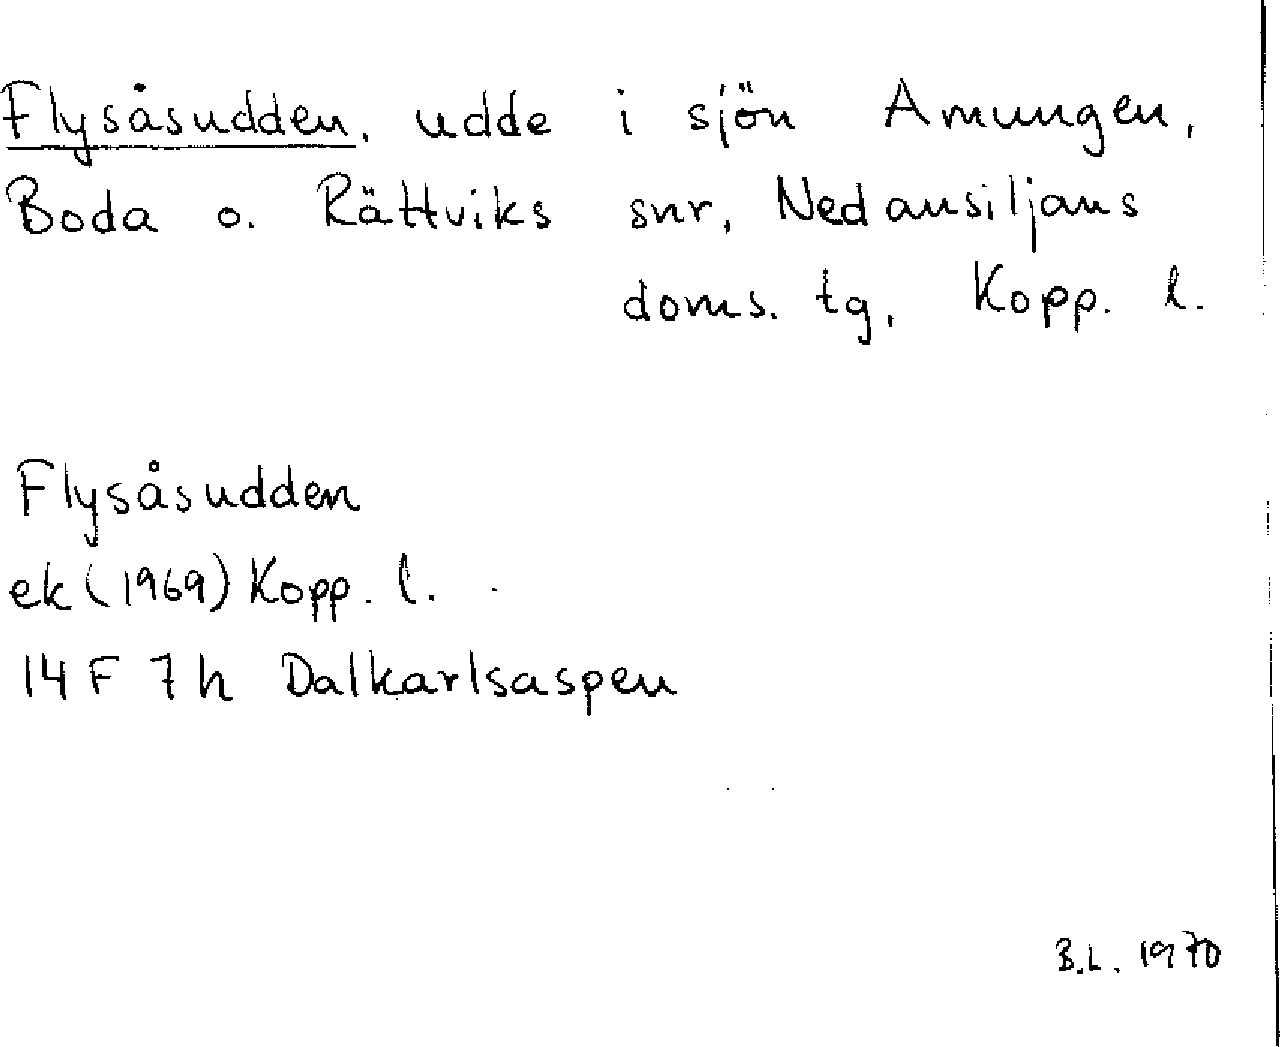 Flysåsudden, udde i sjön Amungen,
Boda o. Rättviks snr, Nedansiljans
doms. tg, Kopp. l.
Flysåsudden
ek (1969) Kopp. l.
14 F 7 h Dalkarlsaspen
B.L. 1970